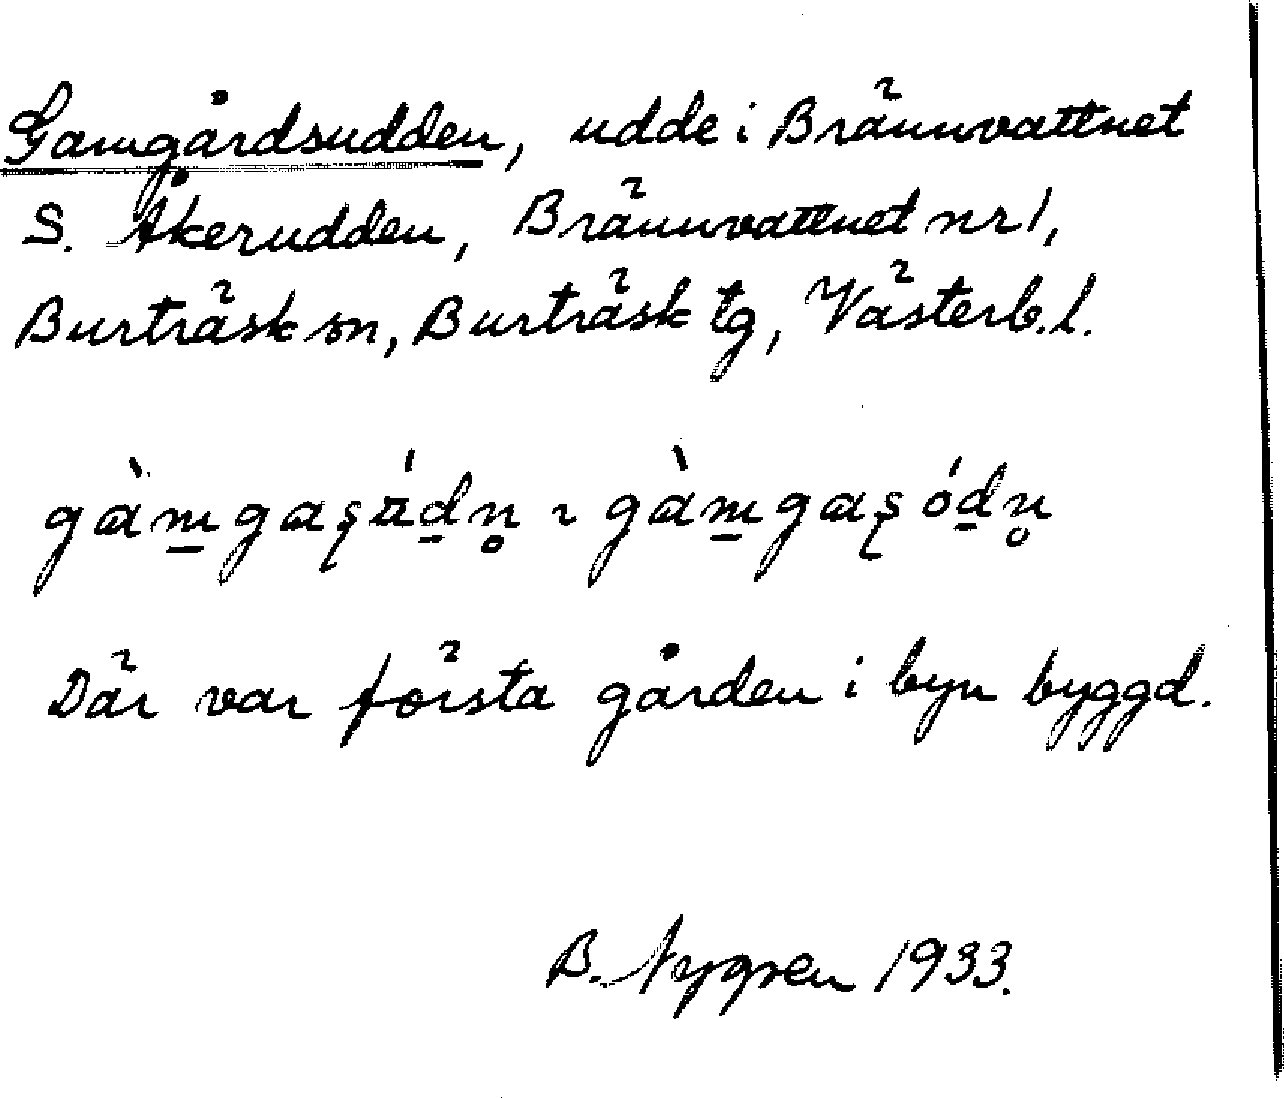 Gamgårdsudden, udde i Brännvattnet
S. Åkerudden, Brännvattnet nr 1,
Burträsk sn, Burträsk tg, Västerb. l.
Där var första gården i byn byggd.
B. Nygren 1933.